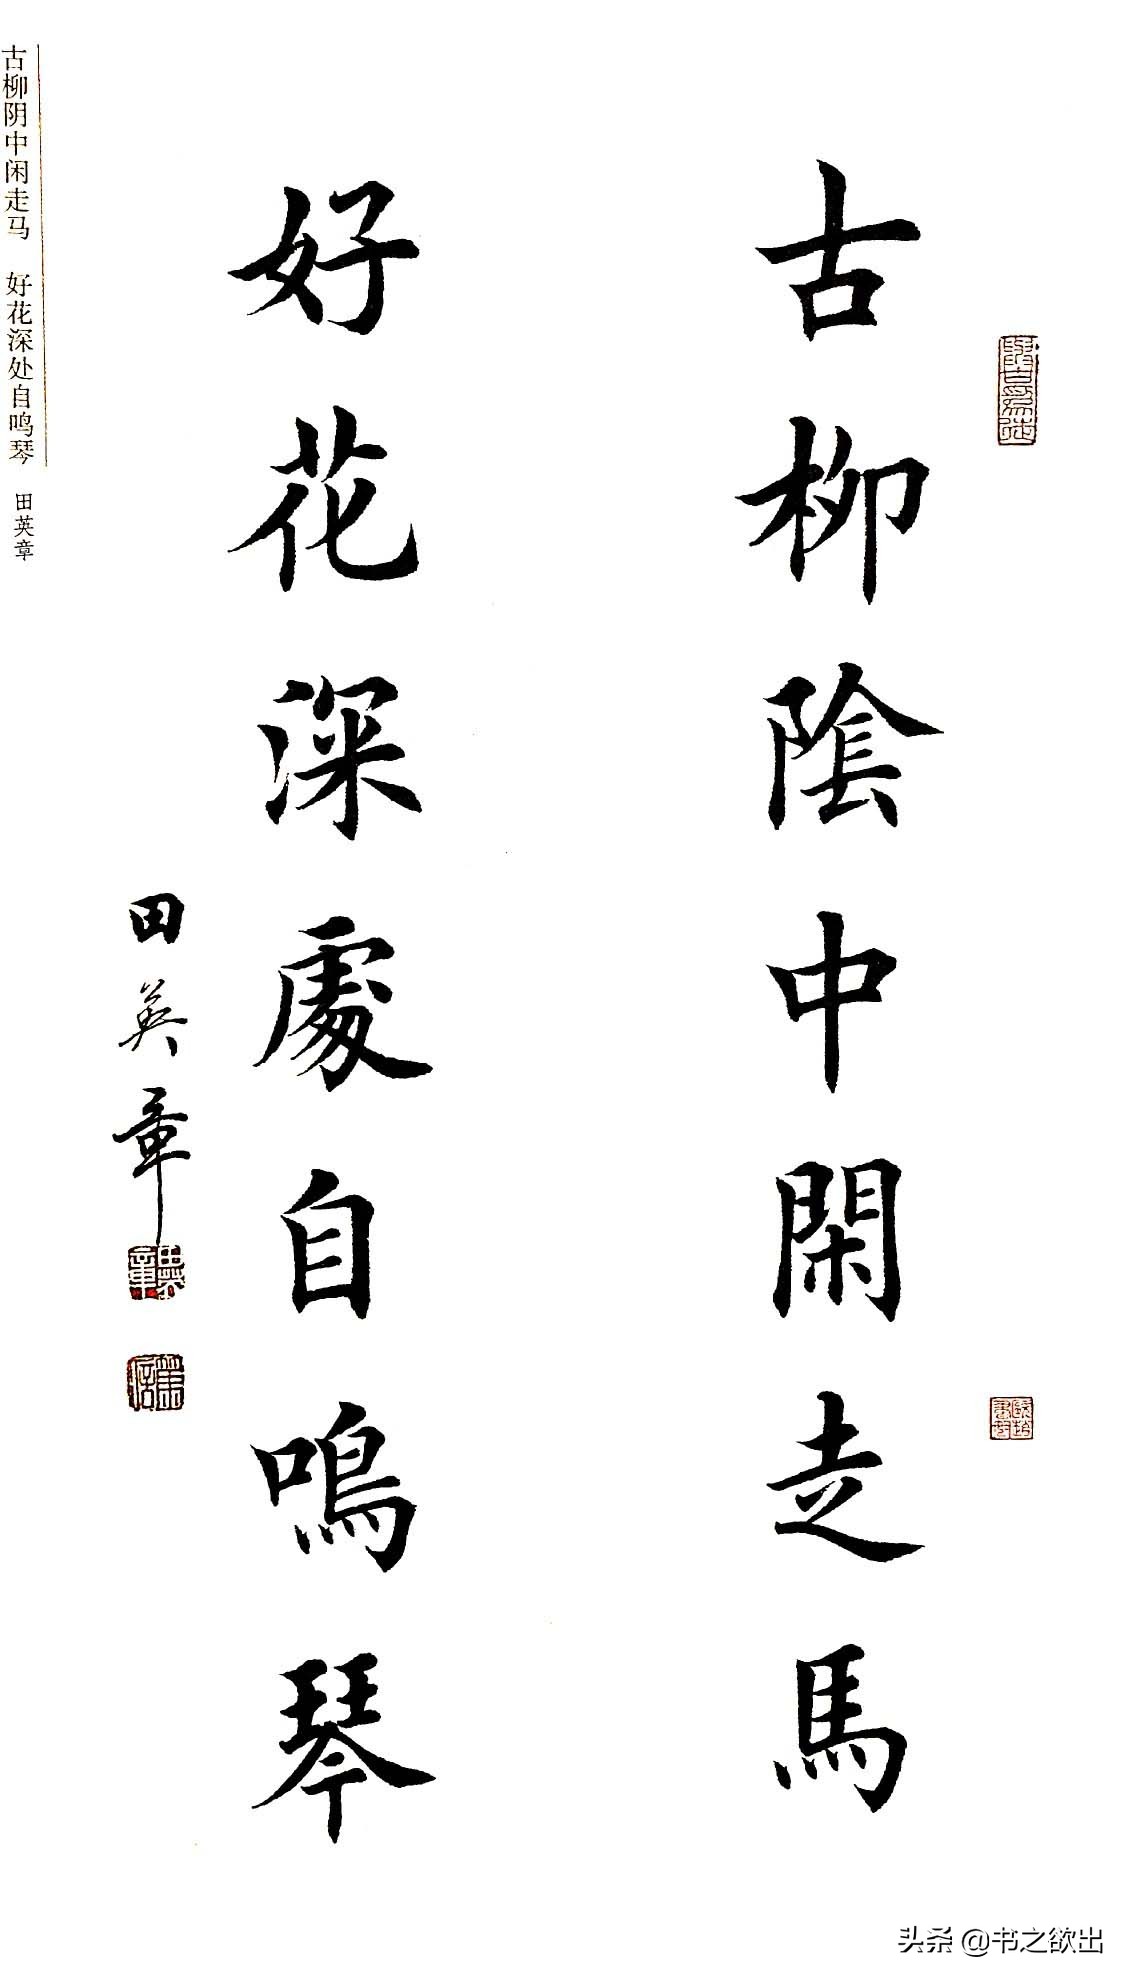 古柳陰中閑走馬
好花深處自鳴琴
田英章
古柳阴中闲走马 好花深处自鸣琴 田英章
头条 @书之欲出